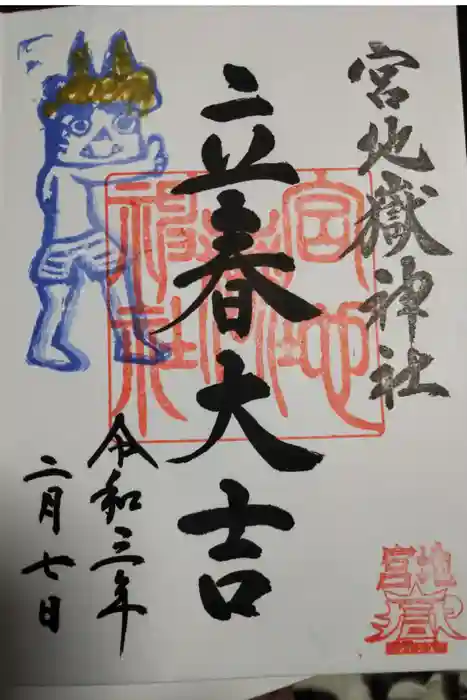 宮地嶽神社
立春大吉
令和三年
二月七日
宮地嶽神社
宮地嶽